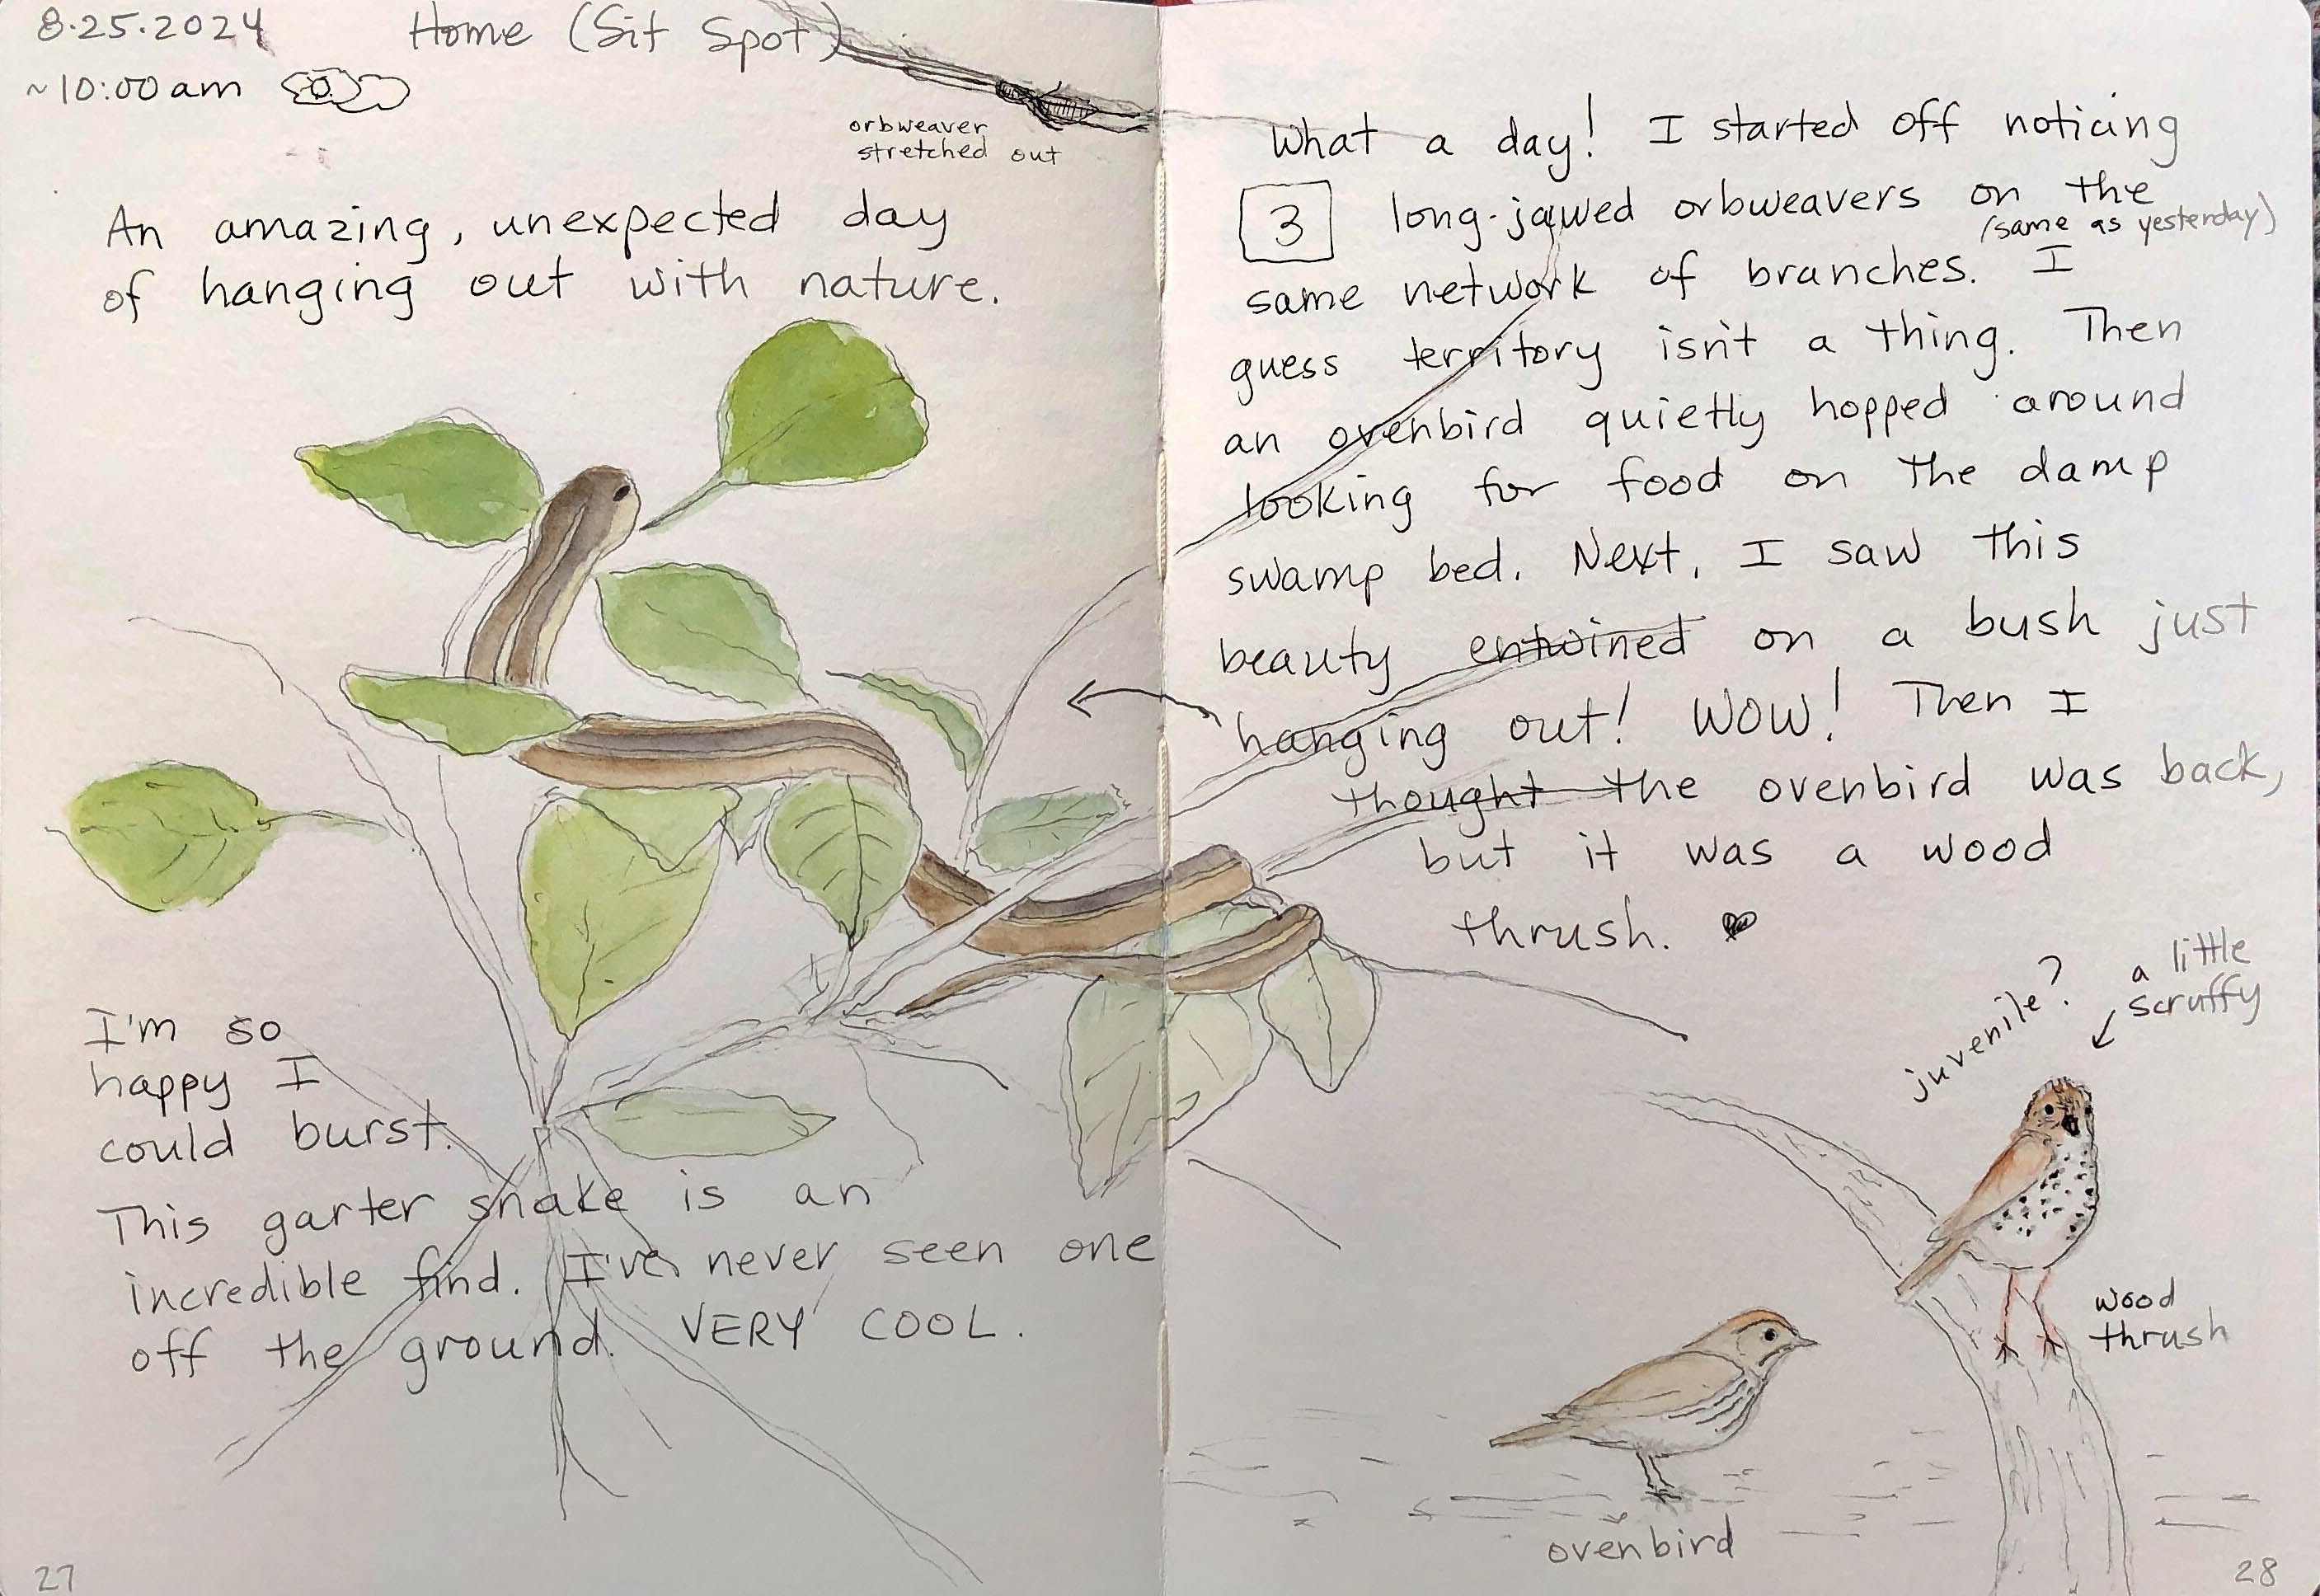 8.25.2024 Home (Sit Spot)
~10:00 am
orbweaver
stretched out
An amazing, unexpected day
of hanging out with nature.
I'm so
happy I
could burst.
This garter snake is an
incredible find. I've never seen one
off the ground. VERY COOL.
27
What a day! I started off noticing
3 long-jawed orbweavers on the
(same as yesterday)
same network of branches. I
guess territory isn't a thing. Then
an ovenbird quietly hopped around
looking for food on the damp
swamp bed. Next, I saw this
beauty entwined on a bush just
hanging out! WOW! Then I
thought the ovenbird was back,
but it was a wood
thrush. ♥
juvenile?
a little
scruffy
wood
thrush
ovenbird
28